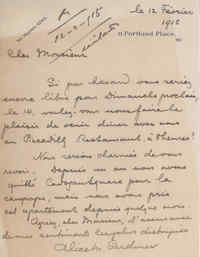 le 12 Février
1915
11 Portland Place,
12-2-15
Cher Monsieur
Si par hasard vous seriez
encore libre pour Dimanche prochain
le 14, voulez vous nous faire le
plaisir de venir dîner avec nous
au Piccadilly Restaurant à 8 heures?
Nous serons charmés de vous
revoir. Depuis un an nous avons
quitté Cavendish Square pour la
campagne, mais nous avons pris
cet apartement depuis quelque mois.
Agréez, cher Monsieur, l'assurance
de mes sentiments les plus distingués
Alice M. Gardiner